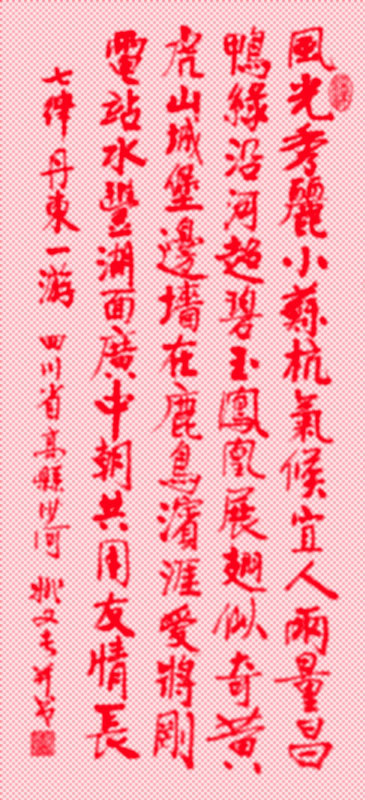 風光秀麗小蘇杭氣候宜人兩量昌
鴨綠沿河超碧玉鳳凰展翅似奇黄
虎山城堡邊墻在鹿鳥濱涯愛將剛
電站水豐湖面廣中朝共用友情長
七律 丹東一游 四川省高縣沙河 姚又